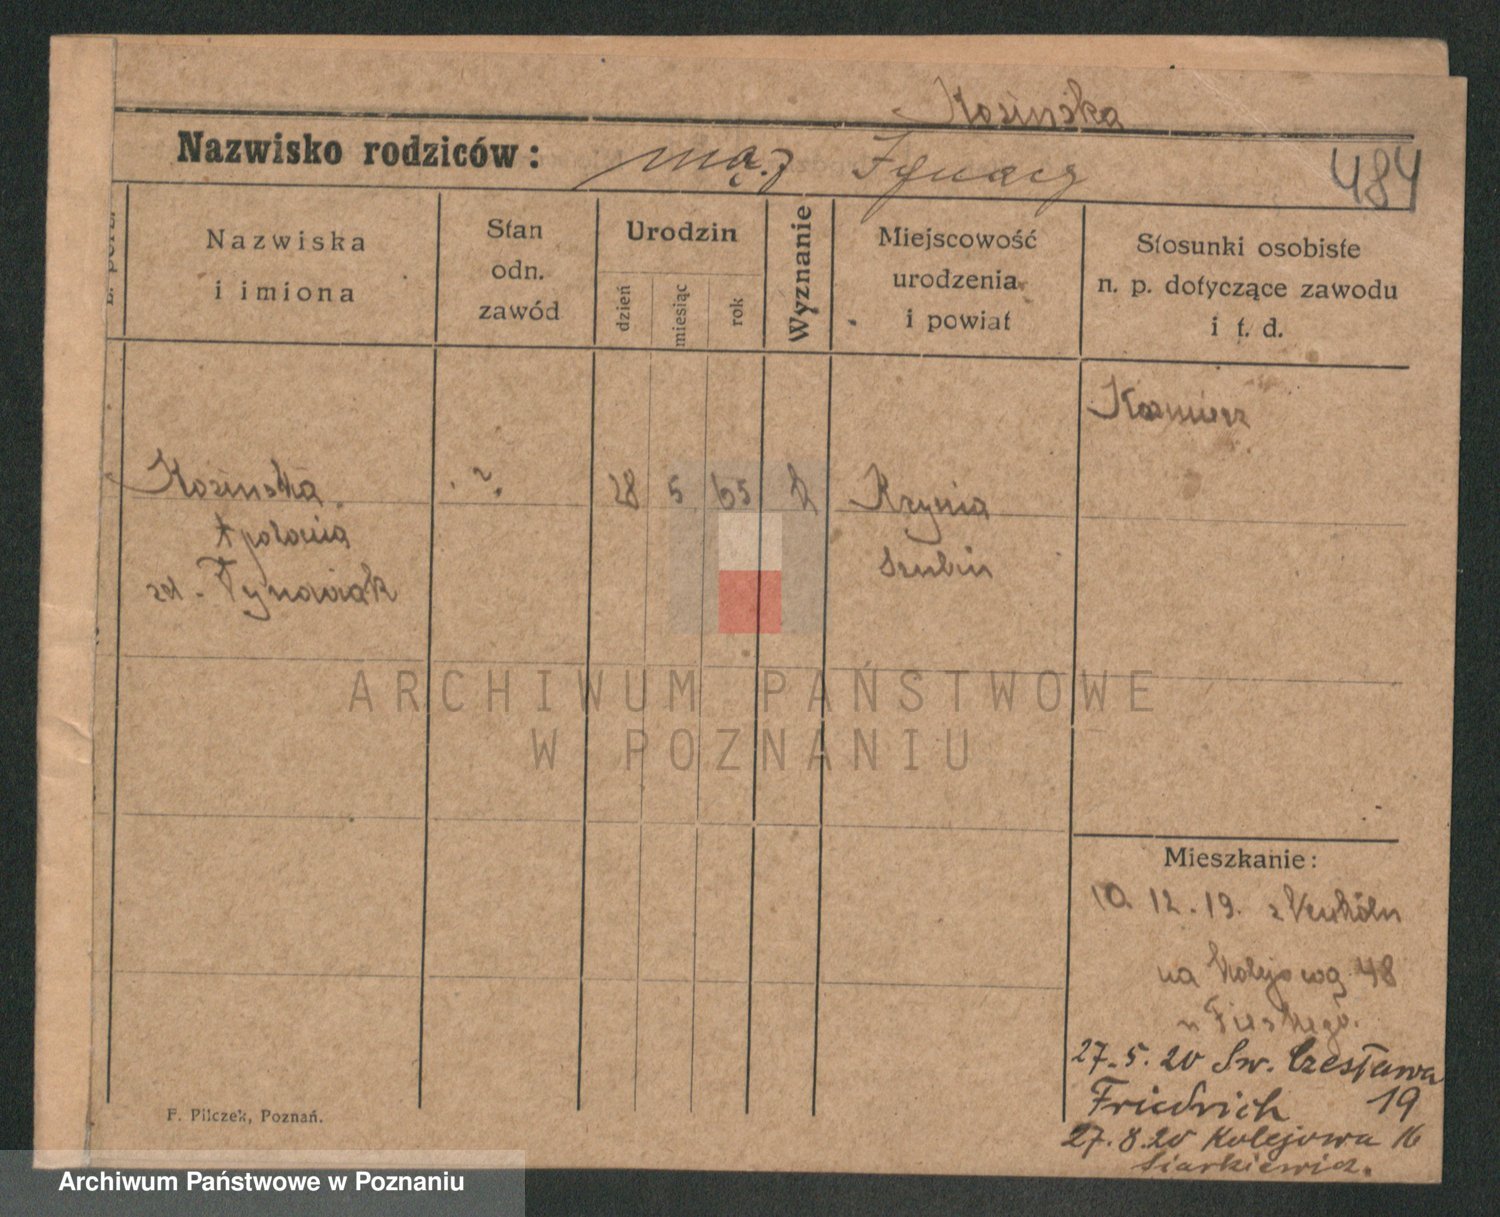 Kosinska
Nazwisko rodziców: mąż Ignacy 484
Nazwiska i imiona
Stan odn. zawód
Urodzin
dzień miesiąc rok
Wyznanie
Miejscowość urodzenia i powiat
Stosunki osobiste n. p. dotyczące zawodu i t. d.
Kosinska 28 5 65 k
Apolonia Szubin
Mieszkanie:
10. 12. 19. z Neukölln
na Kolejową 48
27. 5. 20 Św. Czesława
Friedrich 19
27. 8. 20 Kolejowa 16
Siarkiewicz.
F. Pilczek, Poznań.
ARCHIWUM PAŃSTWOWE
W POZNANIU
Archiwum Państwowe w Poznaniu